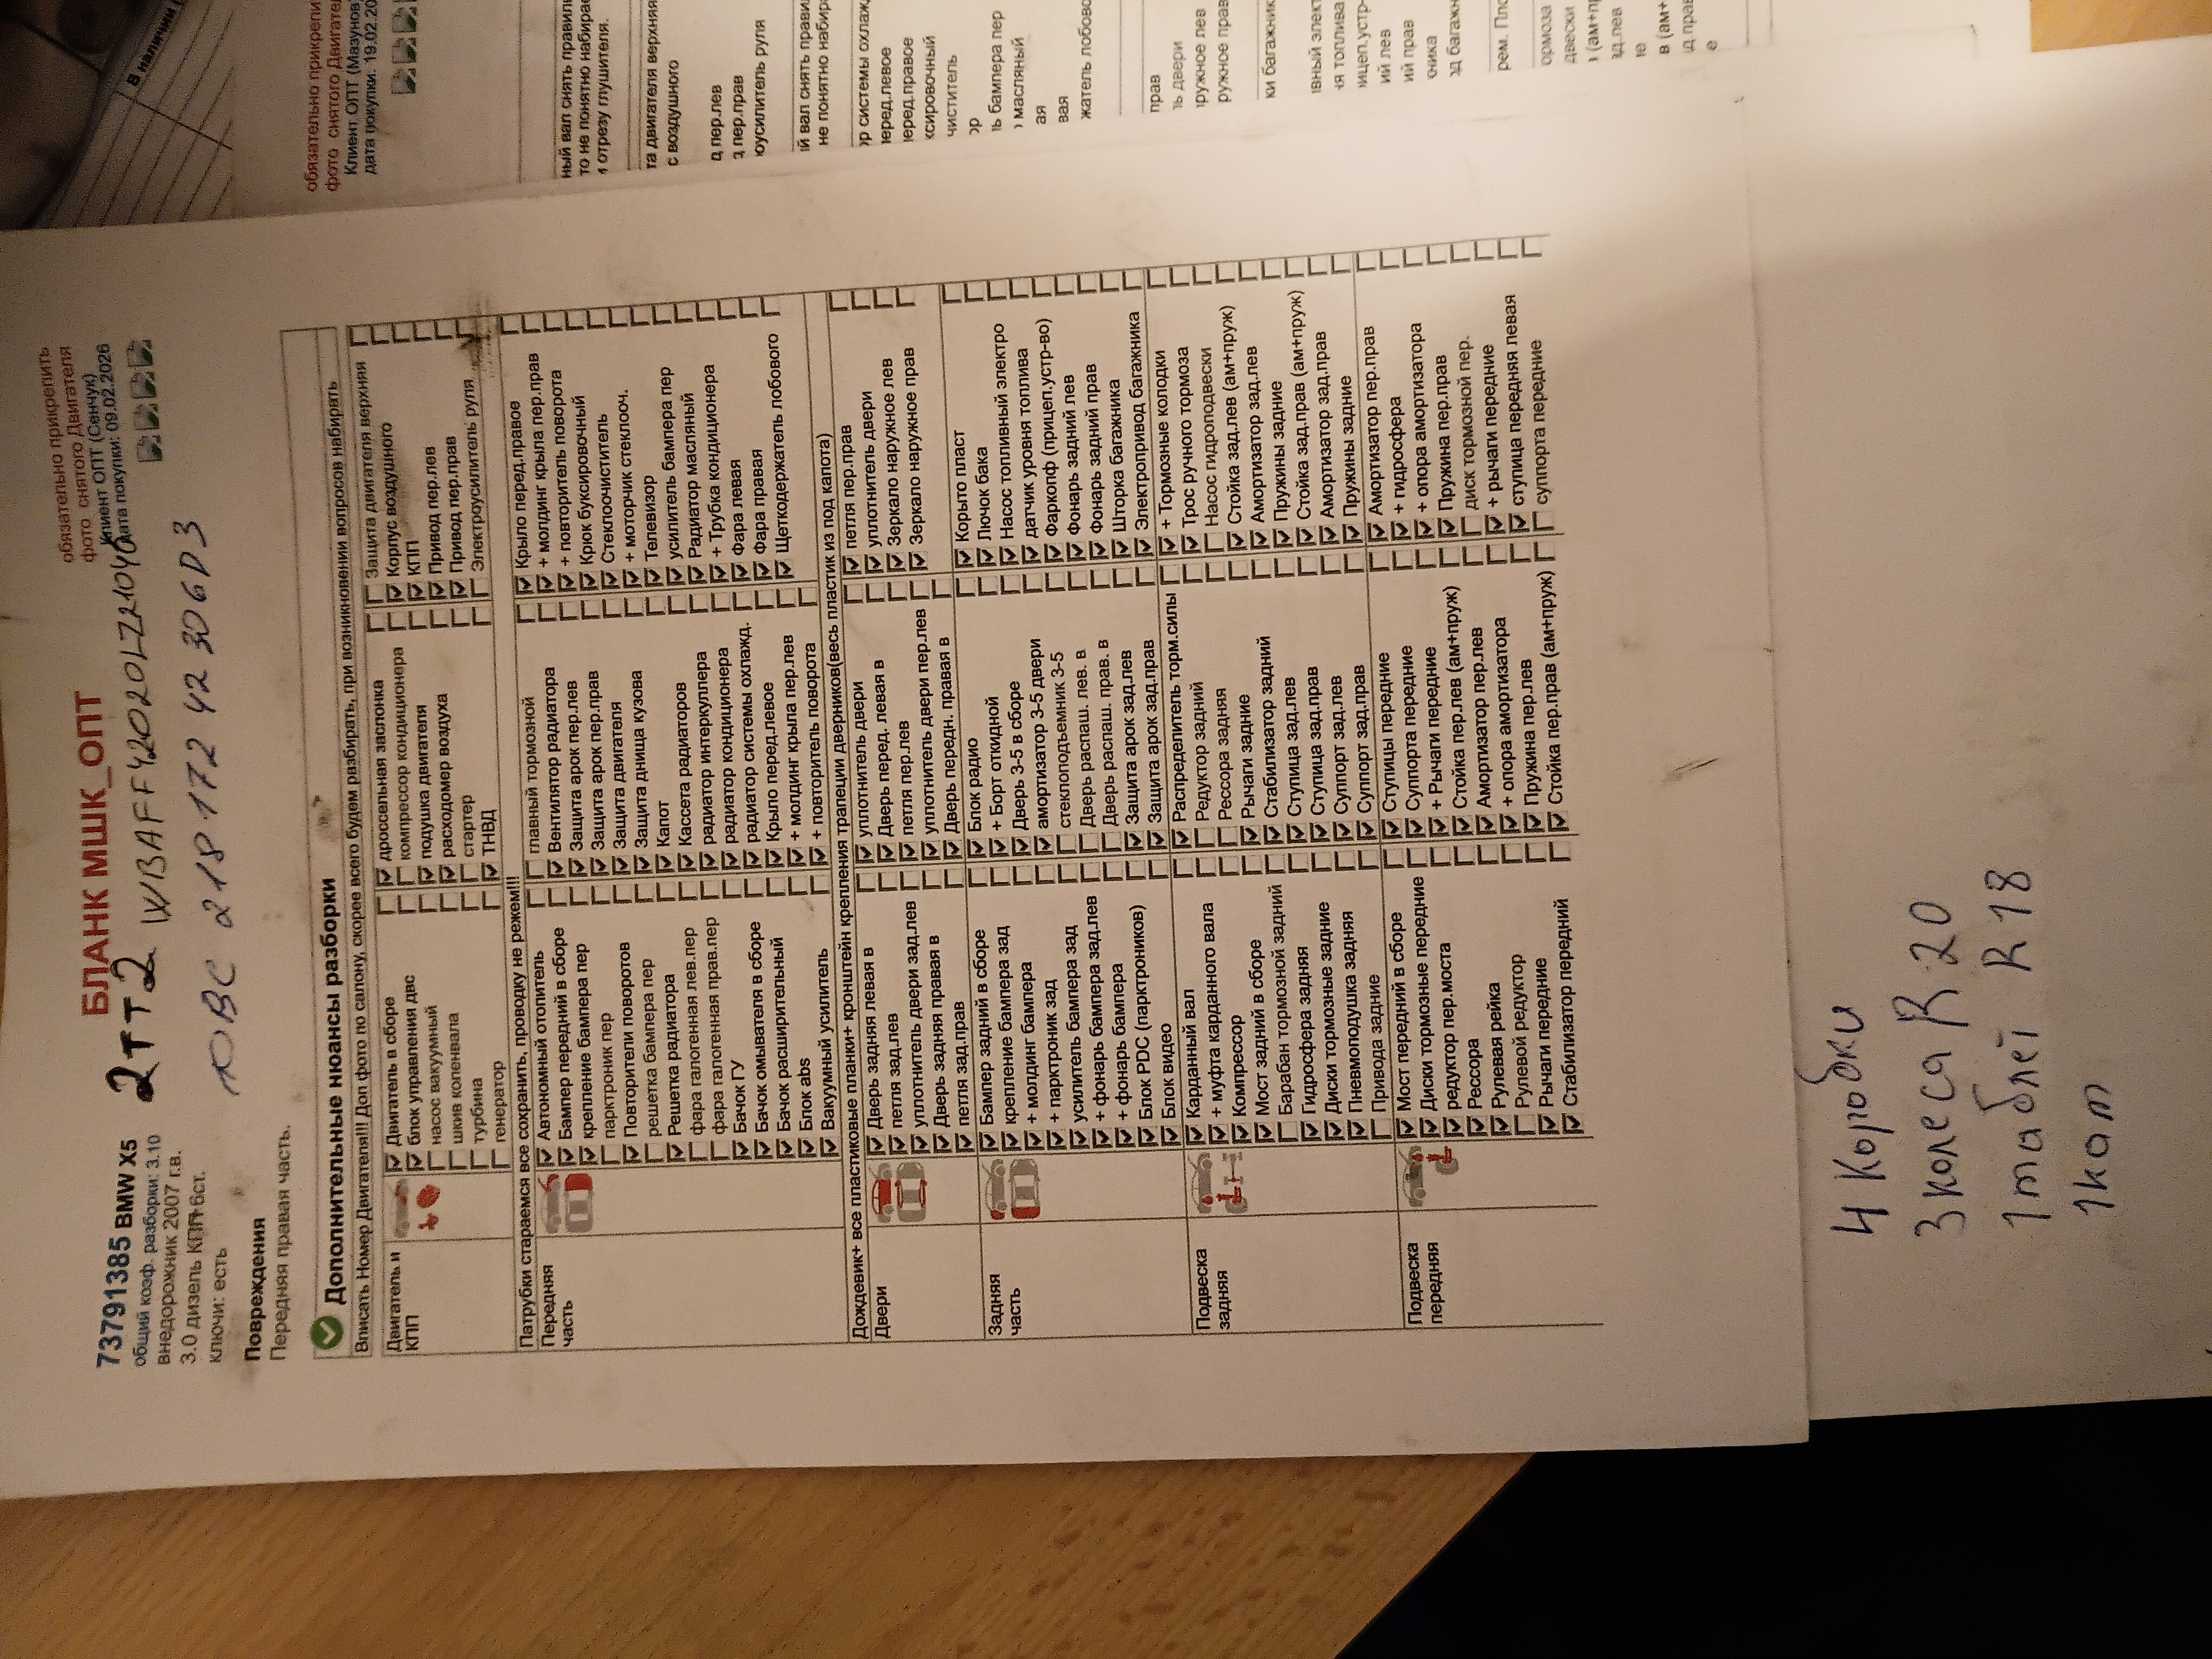 обязательно прикрепить
фото снятого Двигателя
Клиент ОПТ (Сенчук)
Дата покупки: 09.02.2026
БЛАНК МШК_ОПТ
73791385 BMW X5
2ТТ2 WBAFF42020LZ21040
общий коэф. разборки: 3.10
внедорожник 2007 г.в.
3.0 дизель КПП 6ст.
ключи: есть
ДВС 218 172 42 306D3
Повреждения
Передняя правая часть.
Дополнительные нюансы разборки
Вписать Номер Двигателя!!! Доп фото по салону, скорее всего будем разбирать, при возникновении вопросов набирать
Двигатель и КПП
Двигатель в сборе
блок управления двс
насос вакуумный
шкив коленвала
турбина
генератор
дроссельная заслонка
компрессор кондиционера
подушка двигателя
расходомер воздуха
стартер
ТНВД
Защита двигателя верхняя
Корпус воздушного
КПП
Привод пер.лев
Привод пер.прав
Электроусилитель руля
Патрубки стараемся все сохранить, проводку не режем!!!
Передняя часть
Автономный отопитель
Бампер передний в сборе
крепление бампера пер
парктроник пер
Повторители поворотов
решетка бампера пер
Решетка радиатора
фара галогенная лев.пер
фара галогенная прав.пер
Бачок ГУ
Бачок омывателя в сборе
Бачок расширительный
Блок abs
Вакуумный усилитель
главный тормозной
Вентилятор радиатора
Защита арок пер.лев
Защита арок пер.прав
Защита двигателя
Защита днища кузова
Капот
Кассета радиаторов
радиатор интеркуллера
радиатор кондиционера
радиатор системы охлажд.
Крыло перед.левое
+ молдинг крыла пер.лев
+ повторитель поворота
Крыло перед.правое
+ молдинг крыла пер.прав
+ повторитель поворота
Крюк буксировочный
Стеклоочиститель
+ моторчик стеклооч.
Телевизор
усилитель бампера пер
Радиатор масляный
+ Трубка кондиционера
Фара левая
Фара правая
Щеткодержатель лобового
Дождевик+ все пластиковые планки+ кронштейн крепления трапеции дверников(весь пластик из под капота)
Двери
Дверь задняя левая в
петля зад.лев
уплотнитель двери зад.лев
Дверь задняя правая в
петля зад.прав
уплотнитель двери
Дверь перед. левая в
петля пер.лев
уплотнитель двери пер.лев
Дверь передн. правая в
петля пер.прав
уплотнитель двери
Зеркало наружное лев
Зеркало наружное прав
Задняя часть
Бампер задний в сборе
крепление бампера зад
+ молдинг бампера
+ парктроник зад
усилитель бампера зад
+ фонарь бампера зад.лев
+ фонарь бампера
Блок PDC (парктроников)
Блок видео
Блок радио
+ Борт откидной
Дверь 3-5 в сборе
амортизатор 3-5 двери
стеклоподъемник 3-5
Дверь распаш. лев. в
Дверь распаш. прав. в
Защита арок зад.лев
Защита арок зад.прав
Корыто пласт
Лючок бака
Насос топливный электро
датчик уровня топлива
Фаркопф (прицеп.устр-во)
Фонарь задний лев
Фонарь задний прав
Шторка багажника
Электропривод багажника
Подвеска задняя
Карданный вал
+ муфта карданного вала
Компрессор
Мост задний в сборе
Барабан тормозной задний
Гидросфера задняя
Диски тормозные задние
Пневмоподушка задняя
Привода задние
Распределитель торм.силы
Редуктор задний
Рессора задняя
Рычаги задние
Стабилизатор задний
Ступица зад.лев
Ступица зад.прав
Суппорт зад.лев
Суппорт зад.прав
+ Тормозные колодки
Трос ручного тормоза
Насос гидроподвески
Стойка зад.лев (ам+пруж)
Амортизатор зад.лев
Пружины задние
Стойка зад.прав (ам+пруж)
Амортизатор зад.прав
Пружины задние
Подвеска передняя
Мост передний в сборе
Диски тормозные передние
редуктор пер.моста
Рессора
Рулевая рейка
Рулевой редуктор
Рычаги передние
Стабилизатор передний
Ступицы передние
Суппорта передние
+ Рычаги передние
Стойка пер.лев (ам+пруж)
Амортизатор пер.лев
+ опора амортизатора
Пружина пер.лев
Стойка пер.прав (ам+пруж)
Амортизатор пер.прав
+ гидросфера
+ опора амортизатора
Пружина пер.прав
диск тормозной пер.
+ рычаги передние
ступица передняя левая
суппорта передние
4 коробки
3 колеса R 20
1 таблет R 18
1 кат
В наличии
обязательно прикрепи
фото снятого Двигател
Клиент ОПТ (Мазунов
дата покупки: 19.02.20